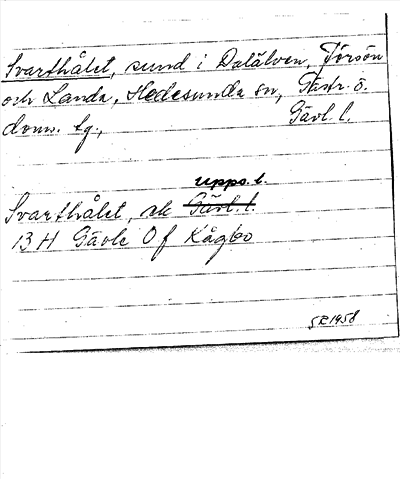 Svarthålet, sund i Dalälven, Törsön
och Landa, Hedesunda sn, Gästr. ö.
doms. tg., Gävl. l.
Upps. l.
Svarthålet, ek Gävl. l.
13 H Gävle 0 f Kågbo
SR 1958